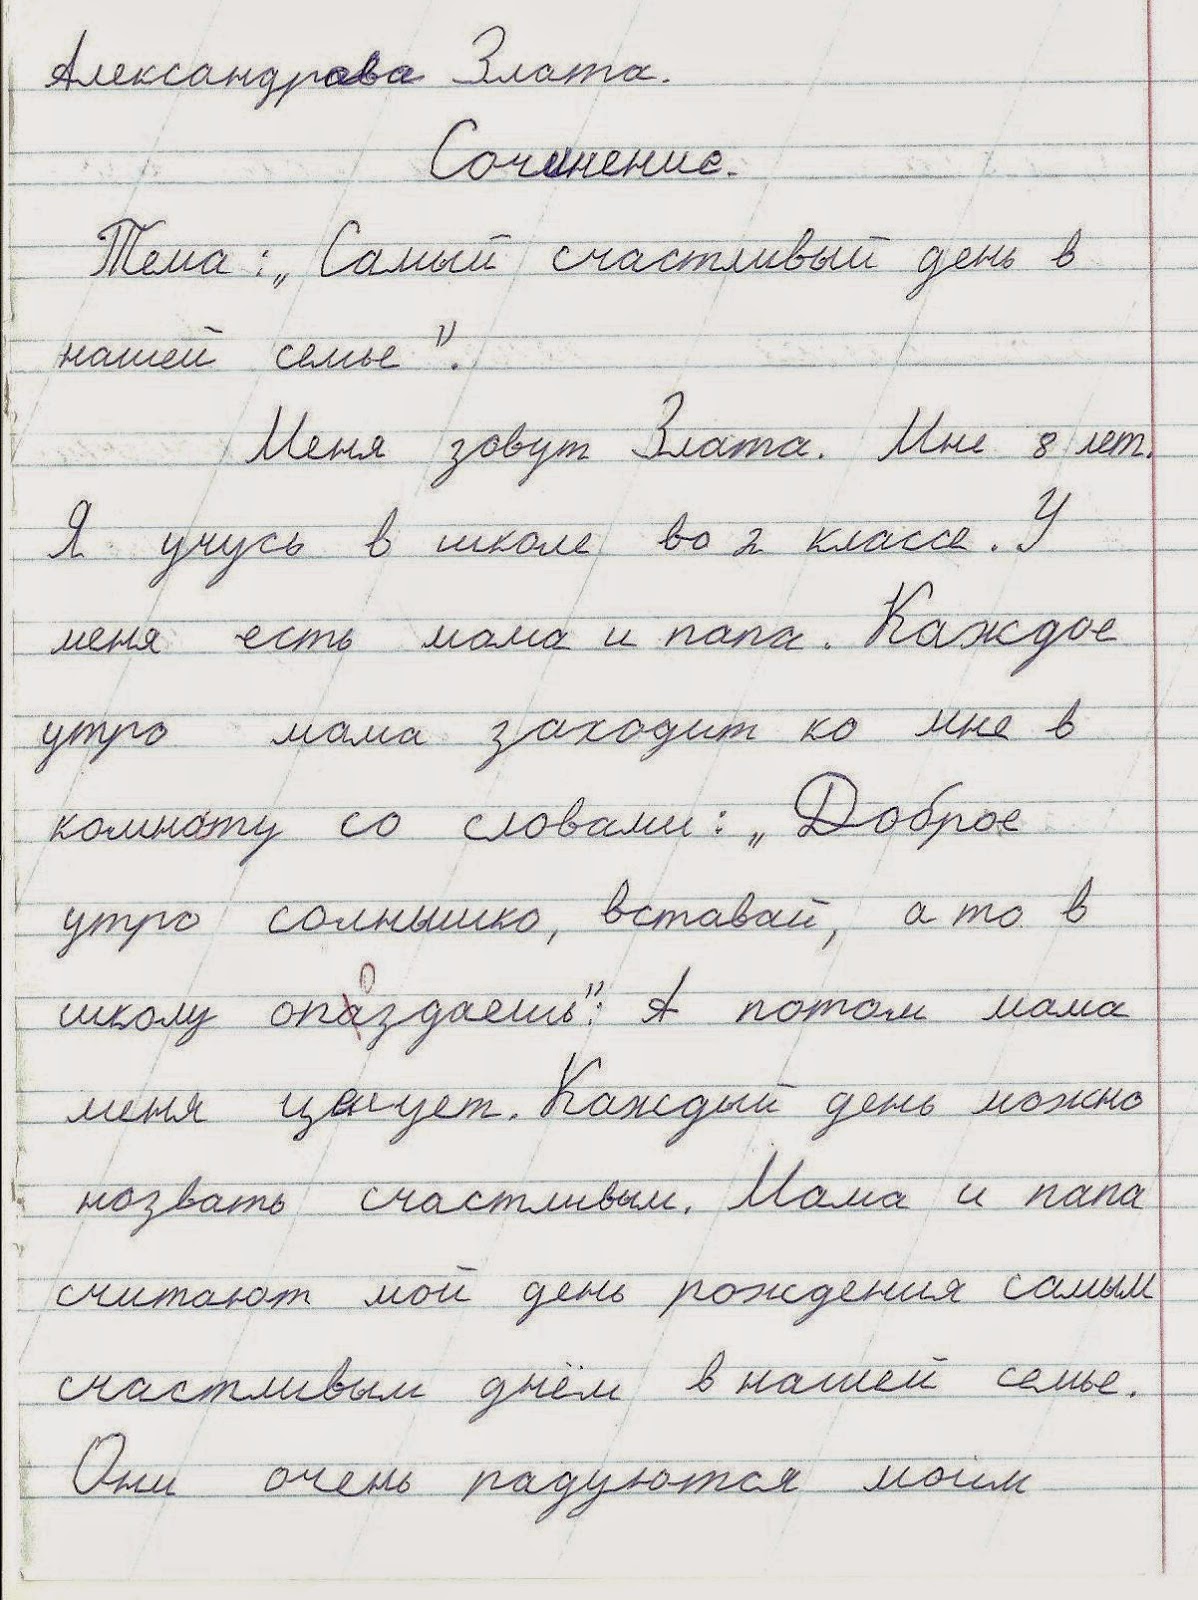 Александрова Злата.
Сочинение.
Тема: „Самый счастливый день в
нашей семье".
Меня зовут Злата. Мне 8 лет.
Я учусь в школе во 2 классе. У
меня есть мама и папа. Каждое
утро мама заходит ко мне в
комнату со словами: „Доброе
утро солнышко, вставай, а то в
школу опаоздаешь". А потом мама
меня целует. Каждый день можно
назвать счастливым. Мама и папа
считают мой день рождения самым
счастливым днём в нашей семье.
Они очень радуются моим